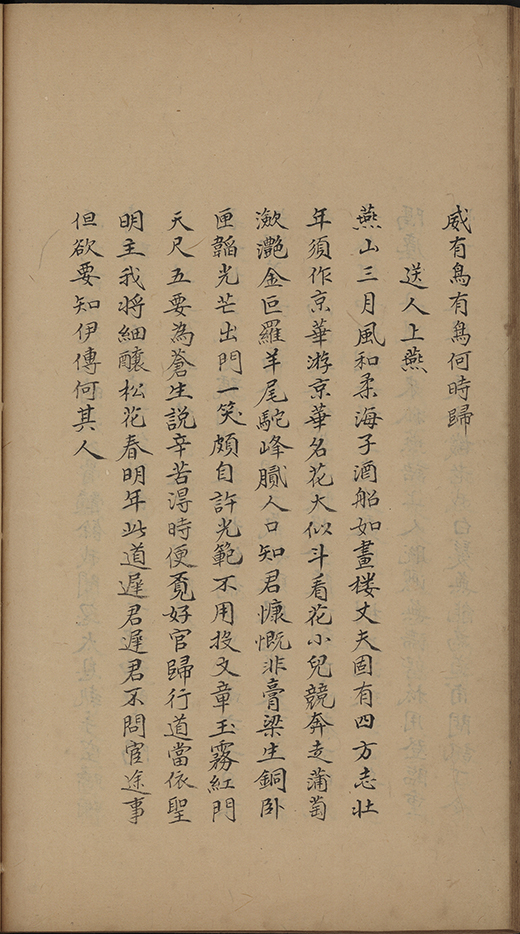 威有鳥有鳥何時歸
送人上燕
燕山三月風和柔海子酒船如畫楼丈夫固有四方志壯
年須作京華游京華名花大似斗看花小兒競奔走蒲萄
潋灔金叵羅羊尾駝峰膩人口知君慷慨非膏梁生銅卧
匣韜光芒出門一笑頗自許光範不用投文章玉霧紅門
天尺五要為蒼生説辛苦淂時便覓好官歸行道當依聖
明主我将細釀松花春明年此道遲君遲君不問宦途事
但欲要知伊傳何其人